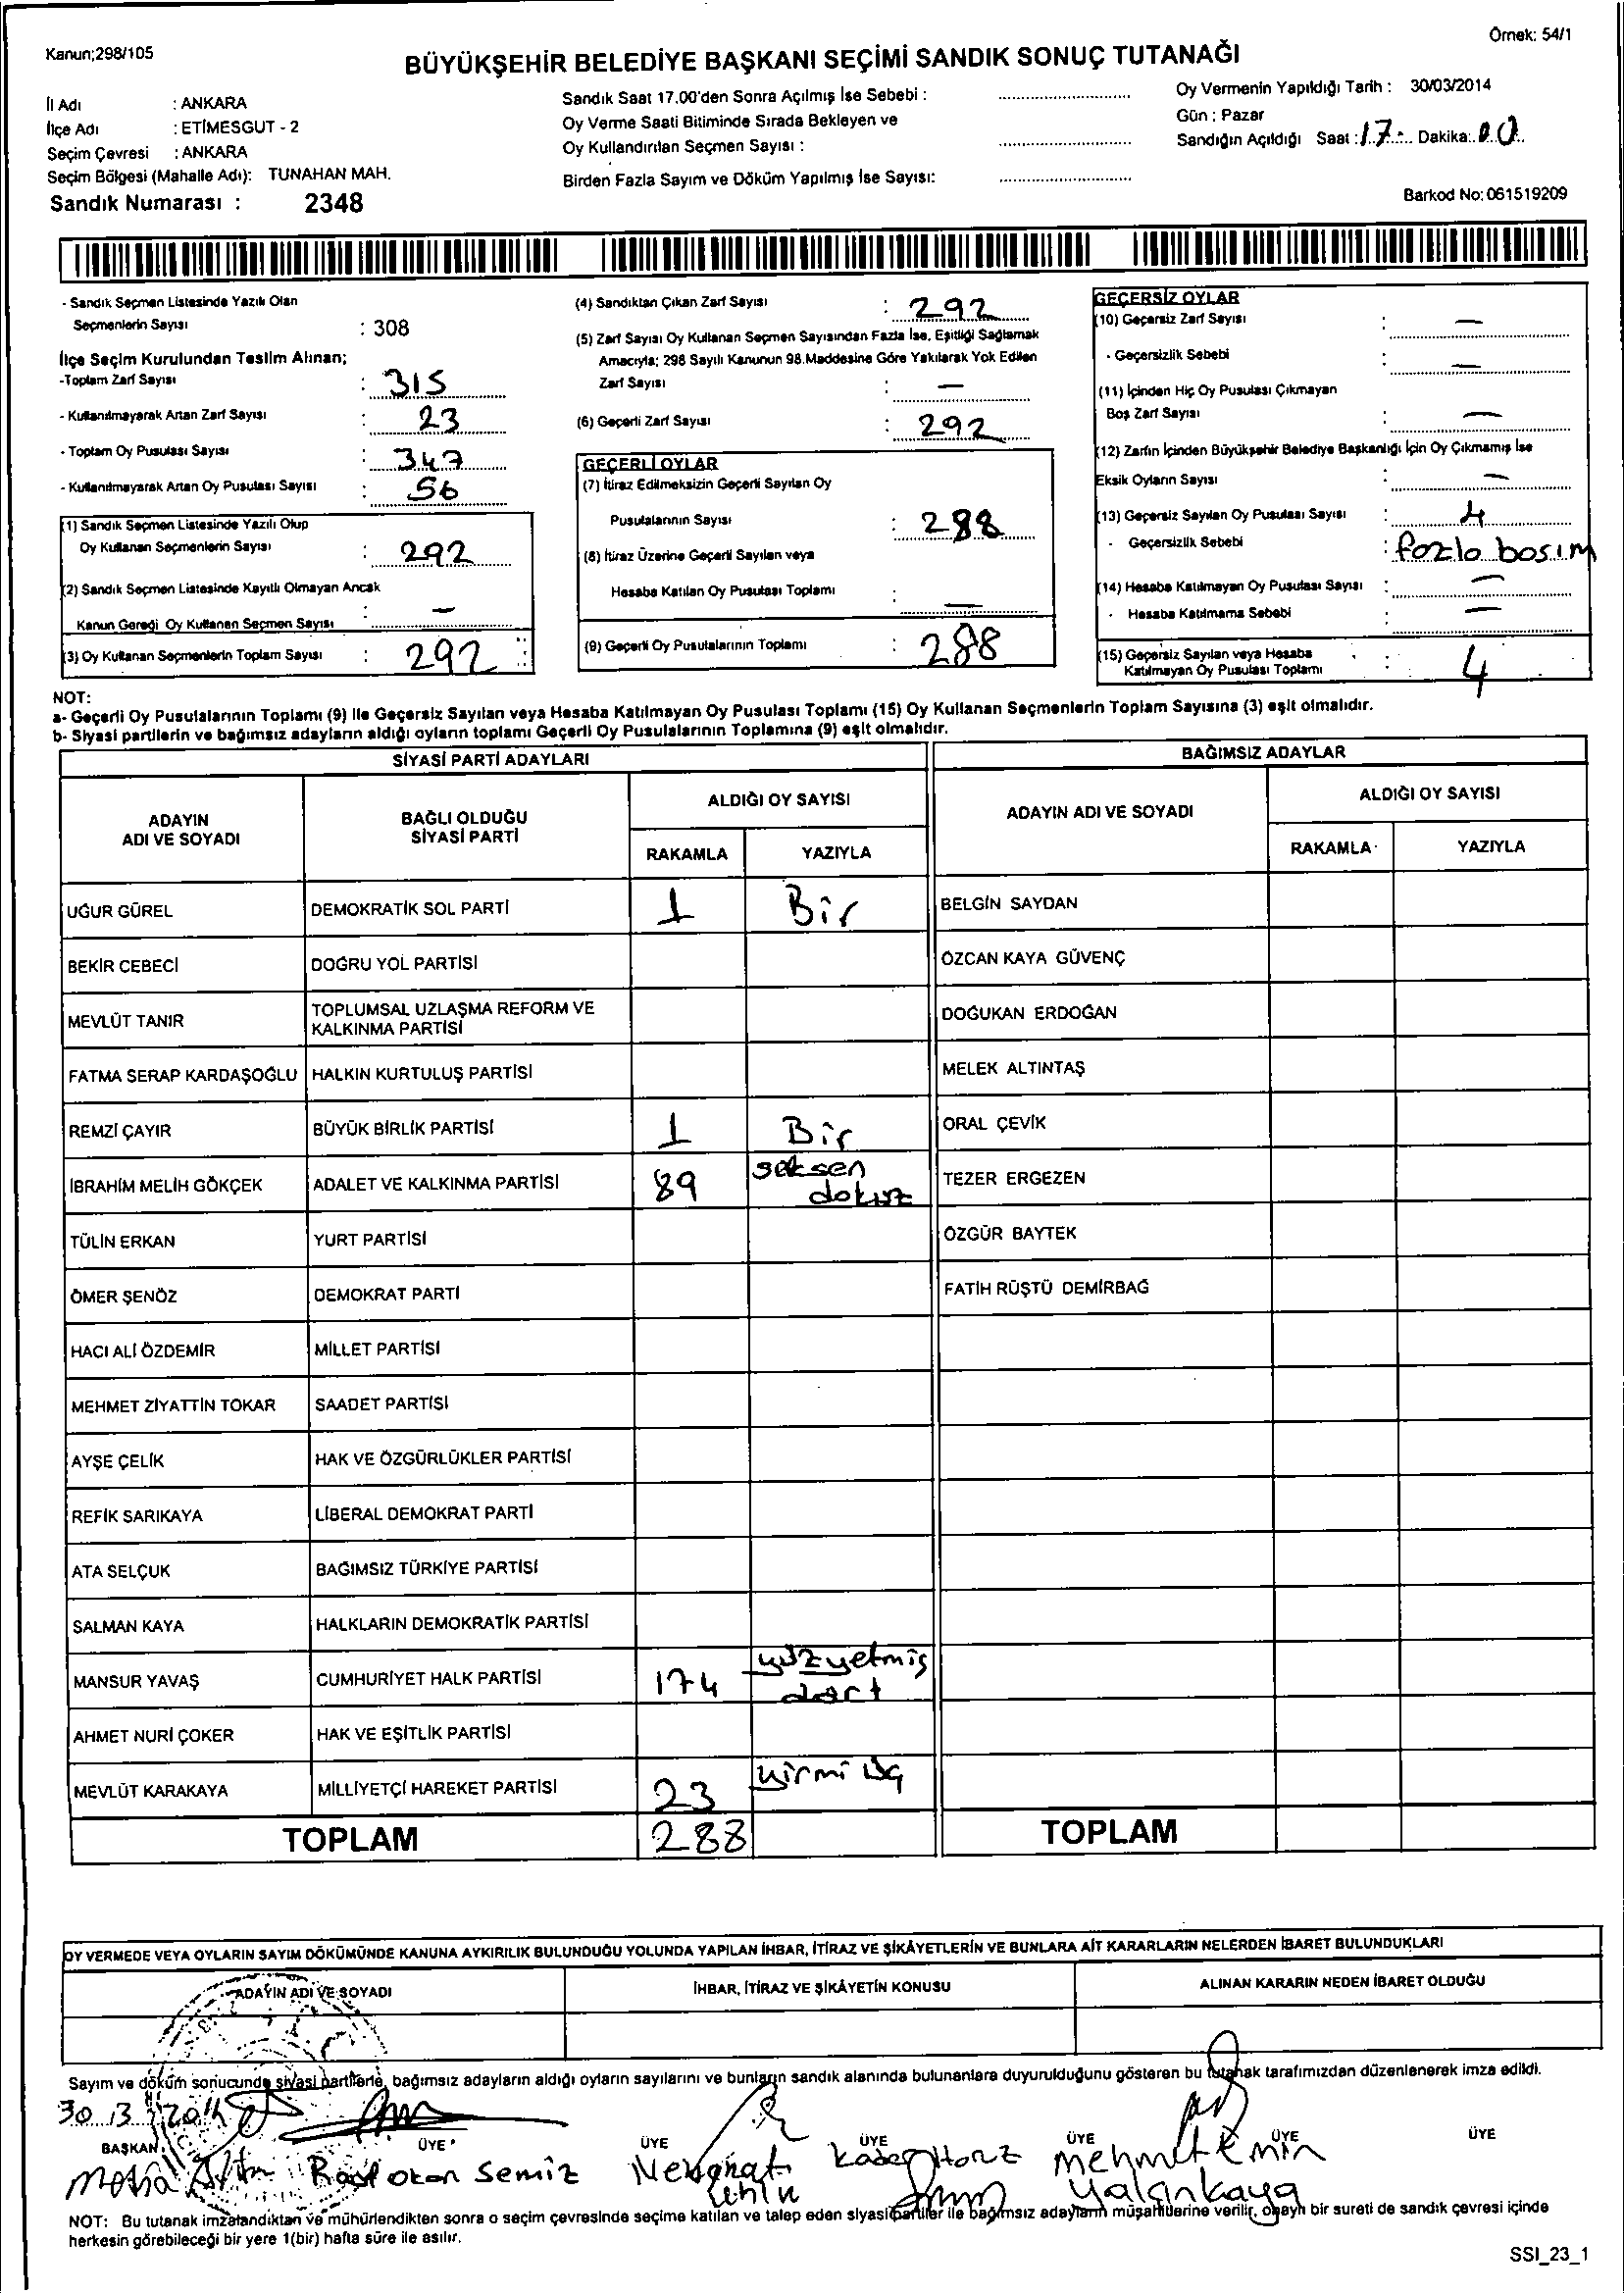 Kanun;298/105
Örnek: 54/1
BÜYÜKŞEHİR BELEDİYE BAŞKANI SEÇİMİ SANDIK SONUÇ TUTANAĞI
İl Adı : ANKARA
İlçe Adı : ETİMESGUT - 2
Seçim Çevresi : ANKARA
Seçim Bölgesi (Mahalle Adı): TUNAHAN MAH.
Sandık Numarası : 2348
Sandık Saat 17.00'den Sonra Açılmış İse Sebebi :
Oy Verme Saati Bitiminde Sırada Bekleyen ve
Oy Kullandırılan Seçmen Sayısı :
Birden Fazla Sayım ve Döküm Yapılmış İse Sayısı:
Oy Vermenin Yapıldığı Tarih : 30/03/2014
Gün : Pazar
Sandığın Açıldığı Saat : 17 Dakika: 00
Barkod No: 061519209
- Sandık Seçmen Listesinde Yazılı Olan
Seçmenlerin Sayısı : 308
İlçe Seçim Kurulundan Teslim Alınan;
-Toplam Zarf Sayısı : 315
- Kullanılmayarak Artan Zarf Sayısı : 23
- Toplam Oy Pusulası Sayısı : 347
- Kullanılmayarak Artan Oy Pusulası Sayısı : 56
(1) Sandık Seçmen Listesinde Yazılı Olup
Oy Kullanan Seçmenlerin Sayısı : 292
(2) Sandık Seçmen Listesinde Kayıtlı Olmayan Ancak
Kanun Gereği Oy Kullanan Seçmen Sayısı : —
(3) Oy Kullanan Seçmenlerin Toplam Sayısı : 292
(4) Sandıktan Çıkan Zarf Sayısı : 292
(5) Zarf Sayısı Oy Kullanan Seçmen Sayısından Fazla İse, Eşitliği Sağlamak
Amacıyla; 298 Sayılı Kanunun 98.Maddesine Göre Yakılarak Yok Edilen
Zarf Sayısı : —
(6) Geçerli Zarf Sayısı : 292
GEÇERLİ OYLAR
(7) İtiraz Edilmeksizin Geçerli Sayılan Oy
Pusulalarının Sayısı : 288
(8) İtiraz Üzerine Geçerli Sayılan veya
Hesaba Katılan Oy Pusulası Toplamı : —
(9) Geçerli Oy Pusulalarının Toplamı : 288
GEÇERSİZ OYLAR
(10) Geçersiz Zarf Sayısı : —
- Geçersizlik Sebebi : —
(11) İçinden Hiç Oy Pusulası Çıkmayan
Boş Zarf Sayısı : —
(12) Zarfın İçinden Büyükşehir Belediye Başkanlığı İçin Oy Çıkmamış İse
Eksik Oyların Sayısı : —
(13) Geçersiz Sayılan Oy Pusulası Sayısı : 4
- Geçersizlik Sebebi : fazla basım
(14) Hesaba Katılmayan Oy Pusulası Sayısı : —
- Hesaba Katılmama Sebebi : —
(15) Geçersiz Sayılan veya Hesaba
Katılmayan Oy Pusulası Toplamı : 4
NOT:
a- Geçerli Oy Pusulalarının Toplamı (9) ile Geçersiz Sayılan veya Hesaba Katılmayan Oy Pusulası Toplamı (15) Oy Kullanan Seçmenlerin Toplam Sayısına (3) eşit olmalıdır.
b- Siyasi partilerin ve bağımsız adayların aldığı oyların toplamı Geçerli Oy Pusulalarının Toplamına (9) eşit olmalıdır.
SİYASİ PARTİ ADAYLARI
ADAYIN
ADI VE SOYADI
BAĞLI OLDUĞU
SİYASİ PARTİ
ALDIĞI OY SAYISI
RAKAMLA YAZIYLA
UĞUR GÜREL DEMOKRATİK SOL PARTİ 1 Bir
BEKİR CEBECİ DOĞRU YOL PARTİSİ
MEVLÜT TANIR TOPLUMSAL UZLAŞMA REFORM VE
KALKINMA PARTİSİ
FATMA SERAP KARDAŞOĞLU HALKIN KURTULUŞ PARTİSİ
REMZİ ÇAYIR BÜYÜK BİRLİK PARTİSİ 1 Bir
İBRAHİM MELİH GÖKÇEK ADALET VE KALKINMA PARTİSİ 89 seksen
dokuz
TÜLİN ERKAN YURT PARTİSİ
ÖMER ŞENÖZ DEMOKRAT PARTİ
HACI ALİ ÖZDEMİR MİLLET PARTİSİ
MEHMET ZİYATTİN TOKAR SAADET PARTİSİ
AYŞE ÇELİK HAK VE ÖZGÜRLÜKLER PARTİSİ
REFİK SARIKAYA LİBERAL DEMOKRAT PARTİ
ATA SELÇUK BAĞIMSIZ TÜRKİYE PARTİSİ
SALMAN KAYA HALKLARIN DEMOKRATİK PARTİSİ
MANSUR YAVAŞ CUMHURİYET HALK PARTİSİ 174 yüzyetmiş
dört
AHMET NURİ ÇOKER HAK VE EŞİTLİK PARTİSİ
MEVLÜT KARAKAYA MİLLİYETÇİ HAREKET PARTİSİ 23 yirmi üç
TOPLAM 288
BAĞIMSIZ ADAYLAR
ADAYIN ADI VE SOYADI
ALDIĞI OY SAYISI
RAKAMLA YAZIYLA
BELGİN SAYDAN
ÖZCAN KAYA GÜVENÇ
DOĞUKAN ERDOĞAN
MELEK ALTINTAŞ
ORAL ÇEVİK
TEZER ERGEZEN
ÖZGÜR BAYTEK
FATİH RÜŞTÜ DEMİRBAĞ
TOPLAM
OY VERMEDE VEYA OYLARIN SAYIM DÖKÜMÜNDE KANUNA AYKIRILIK BULUNDUĞU YOLUNDA YAPILAN İHBAR, İTİRAZ VE ŞİKÂYETLERİN VE BUNLARA AİT KARARLARIN NELERDEN İBARET BULUNDUKLARI
ADAYIN ADI VE SOYADI
İHBAR, İTİRAZ VE ŞİKÂYETİN KONUSU
ALINAN KARARIN NEDEN İBARET OLDUĞU
Sayım ve döküm sonucunda siyasi partilerle, bağımsız adayların aldığı oyların sayılarını ve bunların sandık alanında bulunanlara duyurulduğunu gösteren bu tutanak tarafımızdan düzenlenerek imza edildi.
30 / 3 / 2014
BAŞKAN ÜYE ÜYE ÜYE ÜYE ÜYE ÜYE
Okan Semiz
Mehmet Emin
Yalçınkaya
NOT: Bu tutanak imzalandıktan ve mühürlendikten sonra o seçim çevresinde seçime katılan ve talep eden siyasi partiler ile bağımsız adayların müşahitlerine verilir, onaylı bir sureti de sandık çevresi içinde
herkesin görebileceği bir yere 1(bir) hafta süre ile asılır.
SSI_23_1